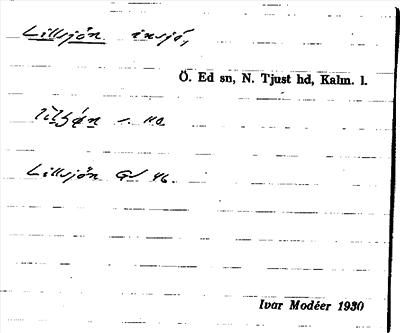 Lillsjön insjö,
Ö. Ed sn, N. Tjust hd, Kalm. l.
Lillsjön GV 46.
Ivar Modéer 1930